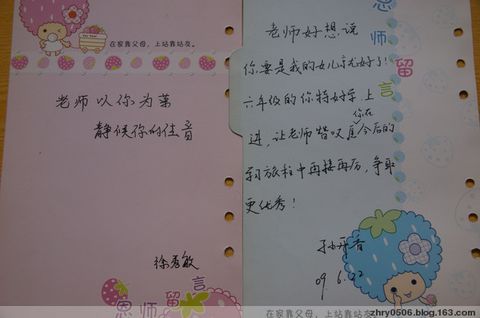 在家靠父母,上站靠站友。
老师以你为荣
静候你的佳音
徐秀敏
恩师留言
恩师留言
老师好想说
你要是我的女儿就好了!
六年级的你特好学上
进,让老师赞叹,你在今后的
旅程中再接再厉,争取
更优秀!
09.6.22
在家靠父母,上站靠站友。
zhry0506.blog.163.com